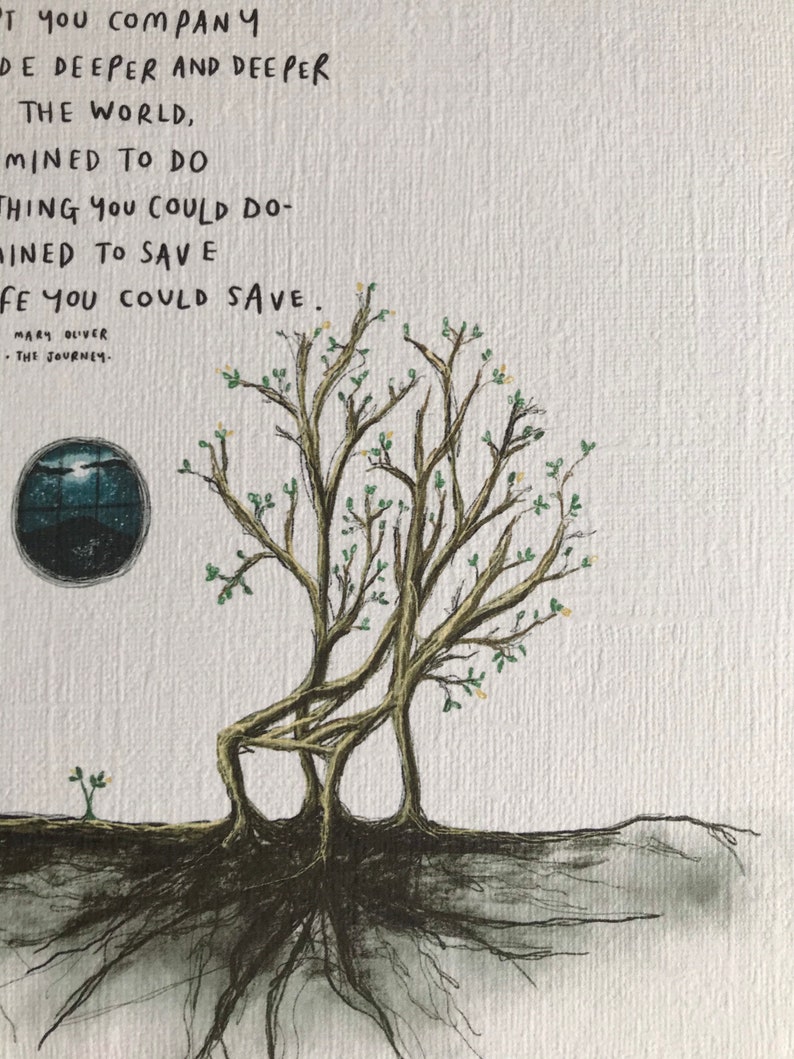 PT YOU COMPANY
DE DEEPER AND DEEPER
THE WORLD,
MINED TO DO
THING YOU COULD DO-
MINED TO SAVE
FE YOU COULD SAVE.
MARY OLIVER
• THE JOURNEY.